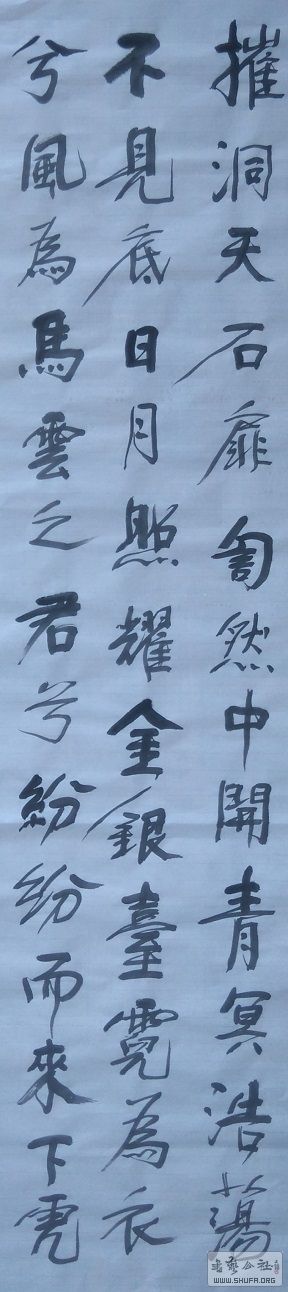 摧洞天石扉訇然中開青冥浩蕩
不見底日月照耀金銀臺霓為衣
兮風為馬雲之君兮紛紛而來下虎
書藝公社
WWW.SHUFA.ORG